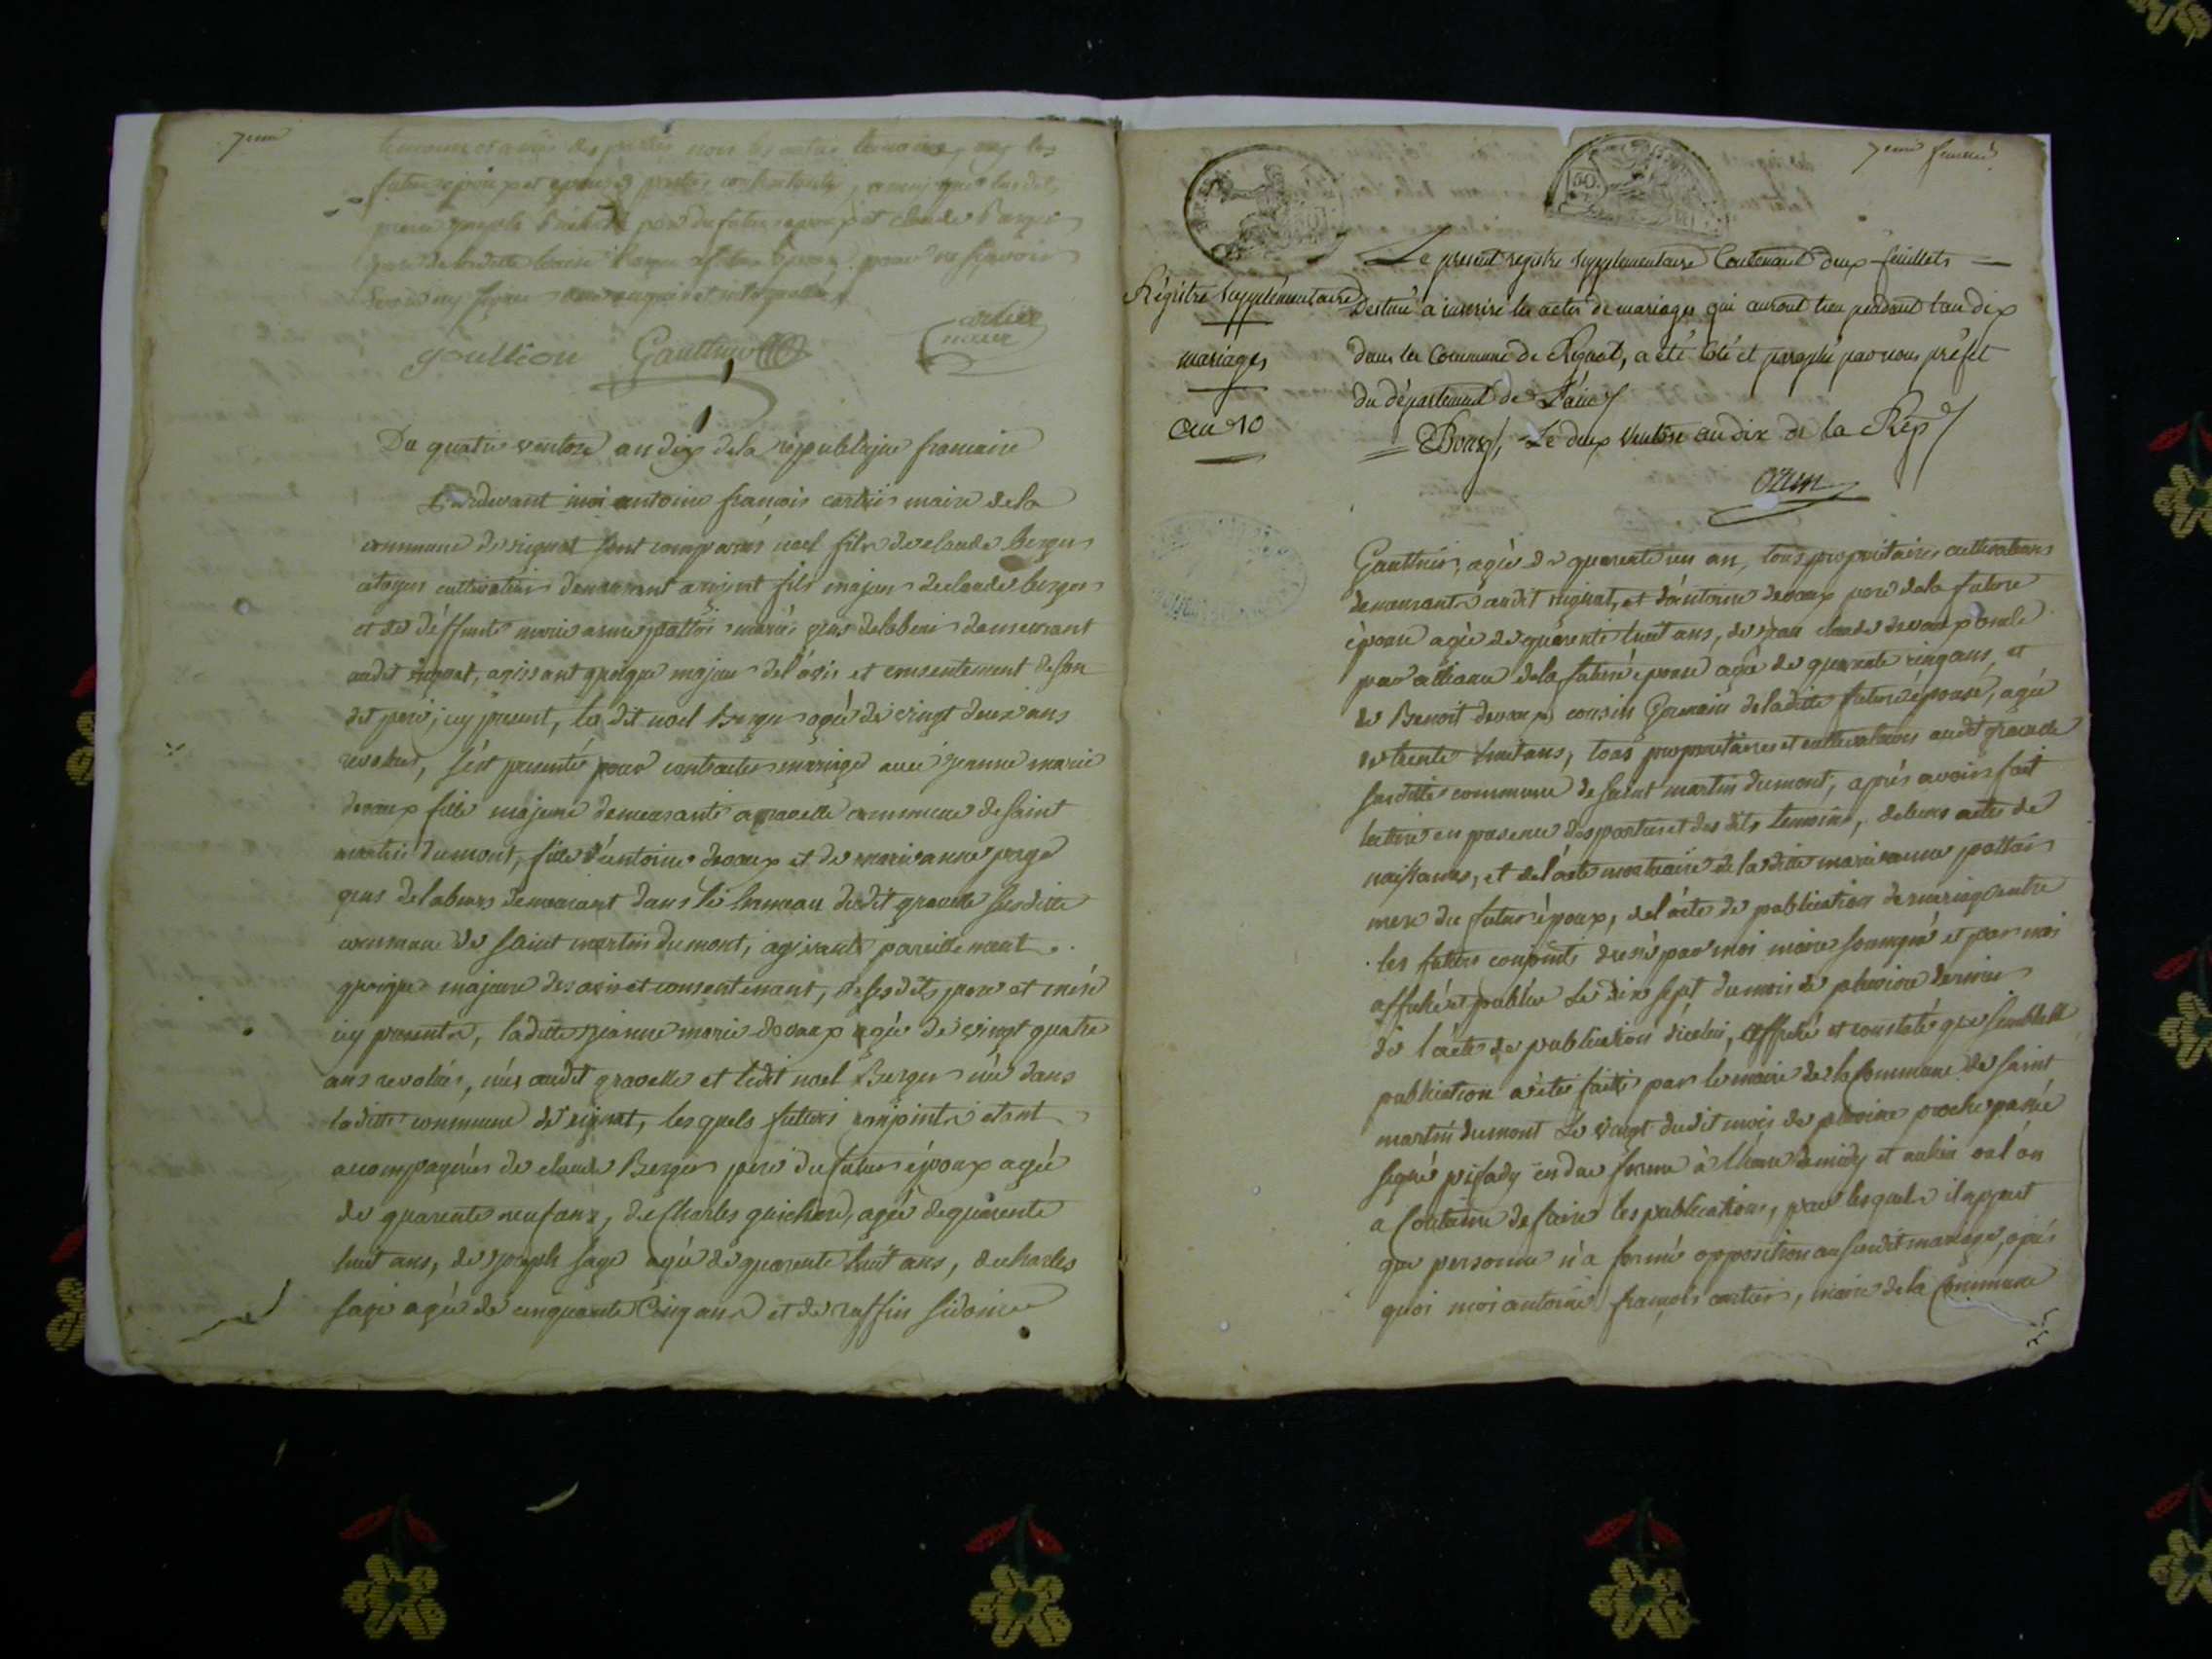 7eme
futurs epoux et epouse parties contractantes
pere du futur epoux et claude Berger
goullion Gauthier cartier
maire
Du quatre ventose an dix de la république francaise
Pardevant moi antoine francois cartier maire de la
commune de rignat sont comparus noel fils de claude Berger
citoyen cultivateur demeurant a rignat fils majeur de claude berger
et de déffunte marie anne pattoir mariés gens de labeur demeurant
audit rignat, agissant quoique majeur de l'avis et consentement de son
dit pere, icy present, le dit noel Berger agée de vingt deux ans
revolus, s'est presenté pour contracter mariage avec jeanne marie
devaux fille majeure demeurante a gravelle commune de saint
martin dumont, fille d'antoine devaux et de marianne page
gens de labeurs demeurant dans le hameau dudit gravelle susditte
commune de saint martin dumont, agissante pareillement
quoique majeure des avis et consentement, de ses dits pere et mere
icy presents, laditte jeanne marie devaux agée de vingt quatre
ans revolus, née audit gravelle et ledit noel Berger née dans
laditte commune de rignat, lesquels futurs conjoints etant
accompagnés de claude Berger pere du futur époux agée
de quarente neuf ans, de Charles guichon, agée de quarente
huit ans, de joseph sage agée de quarente huit ans, de charles
sage agée de cinquante cinq ans et de ruffin sidoine
7eme feuillet
Le present registre supplementaire Contenant deux feuillets
Régistre supplémentaire
Destiné a inscrire les actes de mariages qui auront lieu pendant l'an dix
mariages
dans la Commune de Rignat, a été coté et paraphé par nous préfet
du département de l'ain
an 10
Bourg, Le deux ventose an dix de la Rep
Ozun
Gauthier, agée de quarente un an, tous propriétaires cultivateurs
demeurants audit rignat, et d'antoine devaux pere de la future
épouse agée de quarente huit ans, de jean claude devaux oncle
par alliance de la future épouse agée de quarente cinq ans, et
de Benoit devaux cousin Germain de laditte future épouse, agée
de trente huit ans, tous propriétaires et cultivateurs audit gravelle
susditte commune de saint martin dumont, aprés avoir fait
lecture en presence des parties et des dits temoins, de leurs actes de
naissances, et de l'acte mortuaire de laditte marie anne pattoir
mere du futur époux, de l'acte de publication de mariage entre
les futurs conjoints dressé par moi maire soussigné et par moi
affiché et publiée Le dix sept du mois de pluviose dernier
de l'acte de publication d'icelui, affiché et constaté que semblable
publication a étée faitte par le maire de la Commune de saint
martin dumont Le vingt dudit mois de pluviose proche passé
signé pisady en due forme à l'heure de midy et au lieu ou l'on
a Coutume de faire les publications, par lesquels il appert
que personne n'a formé opposition au susdit mariage, aprés
quoi moi antoine francois cartier, maire de la Commune